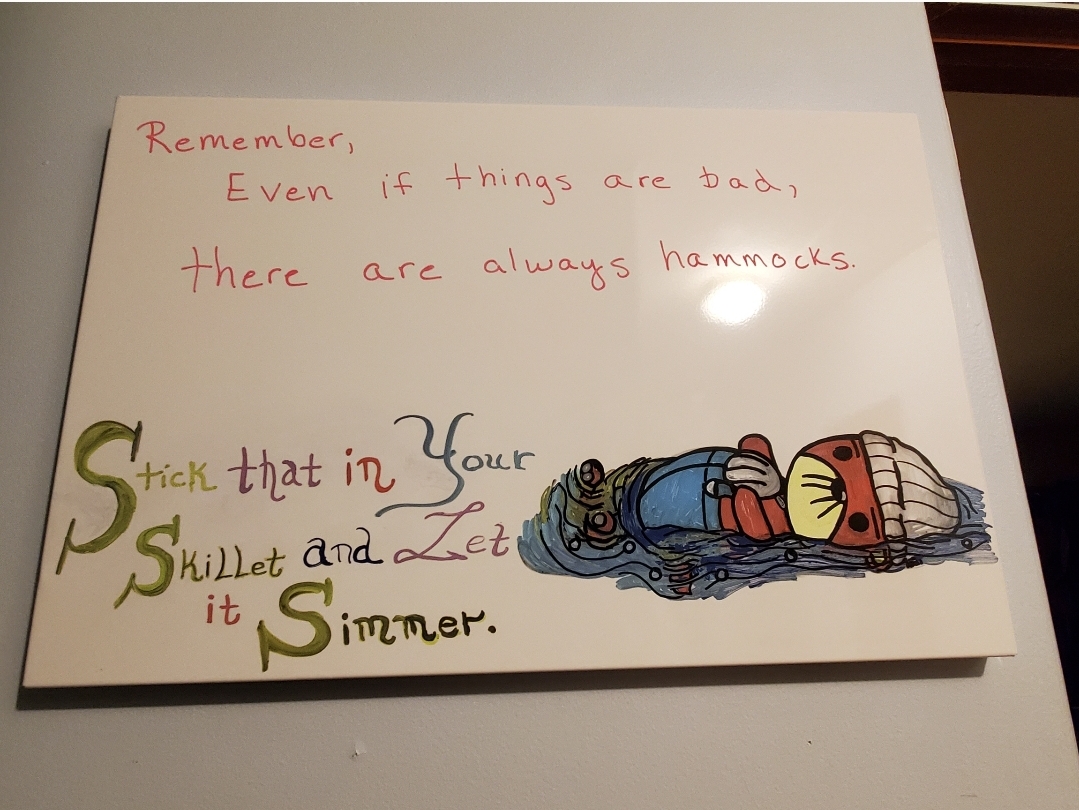 Remember,
Even if things are bad,
there are always hammocks.
Stick that in Your
Skillet and Let
it Simmer.